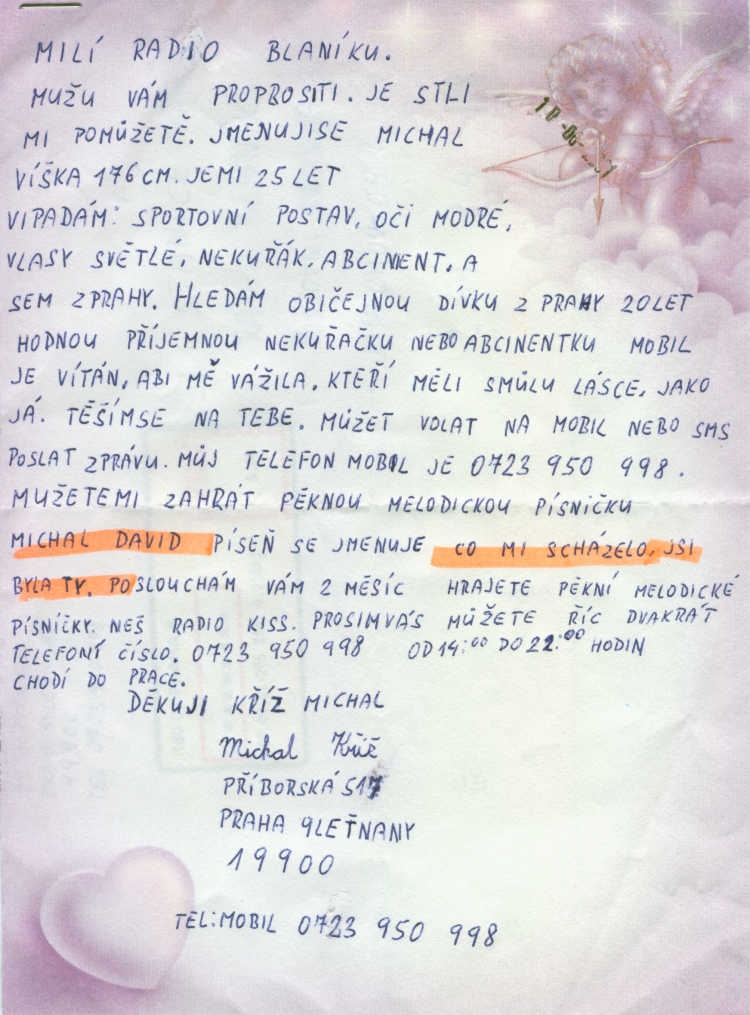 MILÍ RADIO BLANÍKU.
MUŽU VÁM PROPROSITI. JE STLI
MI POMŮŽETĚ. JMENUJISE MICHAL
VÍŠKA 176 CM. JEMI 25 LET
VIPADÁM: SPORTOVNÍ POSTAV, OČI MODRÉ,
VLASY SVĚTLÉ, NEKUŘÁK, ABCINENT, A
SEM ZPRAHY. HLEDÁM OBIČEJNOU DÍVKU Z PRAHY 20 LET
HODNOU PŘÍJEMNOU NEKUŘAČKU NEBO ABCINENTKU MOBIL
JE VÍTÁN, ABI MĚ VÁŽILA. KTEŘÍ MĚLI SMŮLU LÁSCE, JAKO
JÁ. TĚŠÍMSE NA TEBE. MŮŽET VOLAT NA MOBIL NEBO SMS
POSLAT ZPRÁVU. MŮJ TELEFON MOBIL JE 0723 950 998.
MUŽETEMI ZAHRÁT PĚKNOU MELODICKOU PÍSNIČKU
MICHAL DAVID PÍSEŇ SE JMENUJE CO MI SCHÁZELO, JSI
BYLA TY. POSLOUCHÁM VÁM 2 MĚSÍC HRAJETE PĚKNÍ MELODICKÉ
PÍSNIČKY. NEŠ RADIO KISS. PROSIMVÁS MŮŽETE ŘÍC DVAKRÁT
TELEFONÍ ČÍSLO. 0723 950 998 OD 14:00 DO 22:00 HODIN
CHODÍ DO PRACE.
DĚKUJI KŘÍŽ MICHAL
Michal Kříž
PŘÍBORSKÁ 517
PRAHA 9 LETŇANY
19900
TEL:MOBIL 0723 950 998